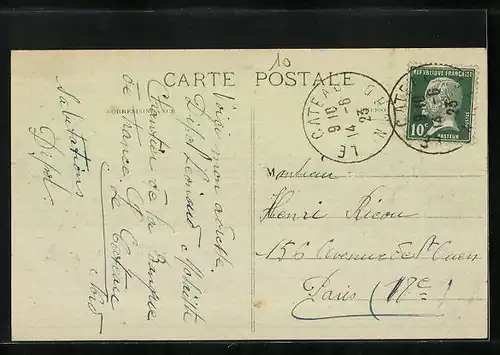 10
CARTE POSTALE
CORRESPONDANCE
Voici mon adresse
Dépol Fernand Modeste
Chantier de la Banque
de France
Le Cateau
Nord
Salutations
Dépol
LE CATEAU
NORD
9 10
14 -6
23
RÉPUBLIQUE FRANÇAISE
10c
POSTES
PASTEUR
Monsieur
Henri Ricou
156 Avenue de St Ouen
Paris (17e)